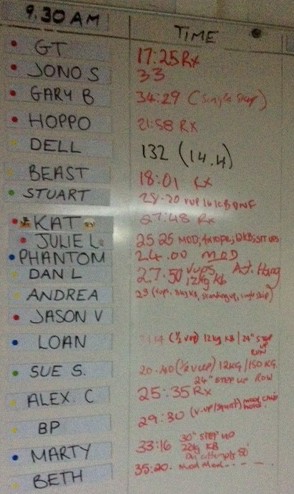 9.30 AM TIME
GT 17:25 Rx
JONO S 33
GARY B 34:29 (Single Skip)
HOPPO 21:58 Rx
DELL 132 (14.4)
BEAST 18:01 Rx
STUART 28-20
KAT 27:48 Rx
JULIE L 25 25 MOD,
PHANTOM 24.00 MOD
DAN L 27.50 VUPS, 12kg KB
ANDREA 23
JASON V
LOAN (½ vup) 12kg KB / 24" STEP UP ROW
SUE S. 20.40 (½ vup) 12KG / 150 KG 24" STEP UP ROW
ALEX. C 25:35 Rx
BP 29:30
MARTY 33:16 30" STEP UP 22kg KB
BETH 35:20.